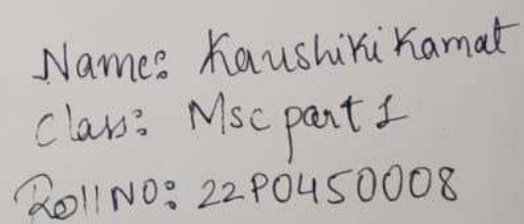 Name: Kaushiki Kamat
Class: Msc part 1
Roll NO: 22P0450008